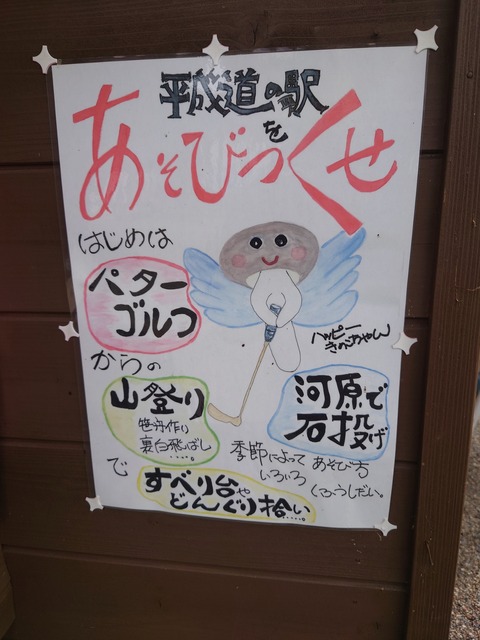 平成道の駅
を
あそびつくせ
はじめは
パター
ゴルフ
ハッピー
きのこちゃん
からの
山登り
笹舟作り
裏白飛ばし
....。
河原で
石投げ
で
季節によって あそび方
いろいろ
くふうしだい。
すべり台や
どんぐり拾い....。